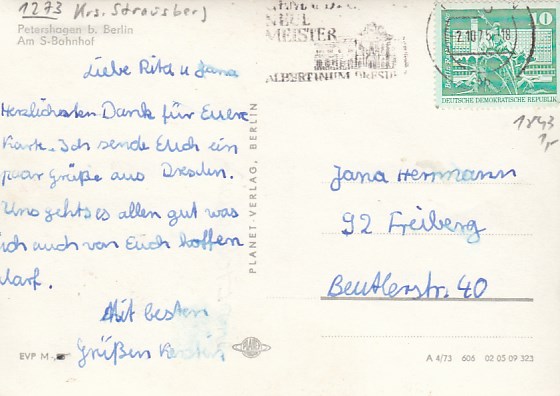 1273 Krs. Strausberg
Petershagen b. Berlin
Am S-Bahnhof
MEISTER
ALBERTINUM DRESDEN
2.10.75-18
10
DEUTSCHE DEMOKRATISCHE REPUBLIK
1843
1,-
Liebe Rita u Jana
Herzlichsten Dank für Euere
Karte. Ich sende Euch ein
paar Grüße aus Dresden.
Uns gehts es allen gut was
ich auch von Euch hoffen
darf.
Mit besten
Grüßen Kerstin
PLANET-VERLAG, BERLIN
Jana Herrmann
92 Freiberg
Beutlerstr. 40
EVP M
PLANET
A 4/73 606 02 05 09 323